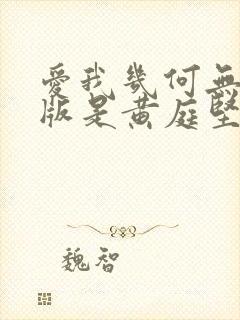 愛我幾何無
版是黄庭堅
魏智